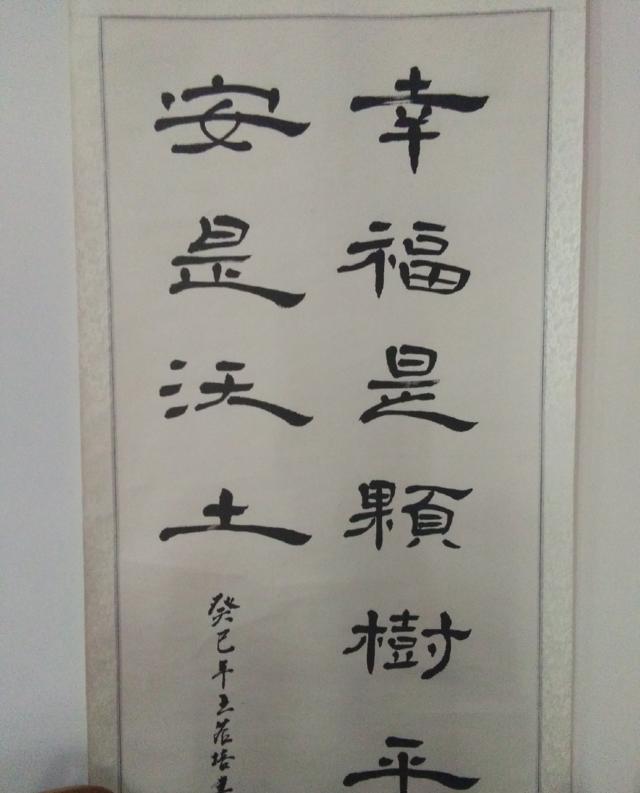 幸福是顆樹平
安是沃土
癸巳年王
培書